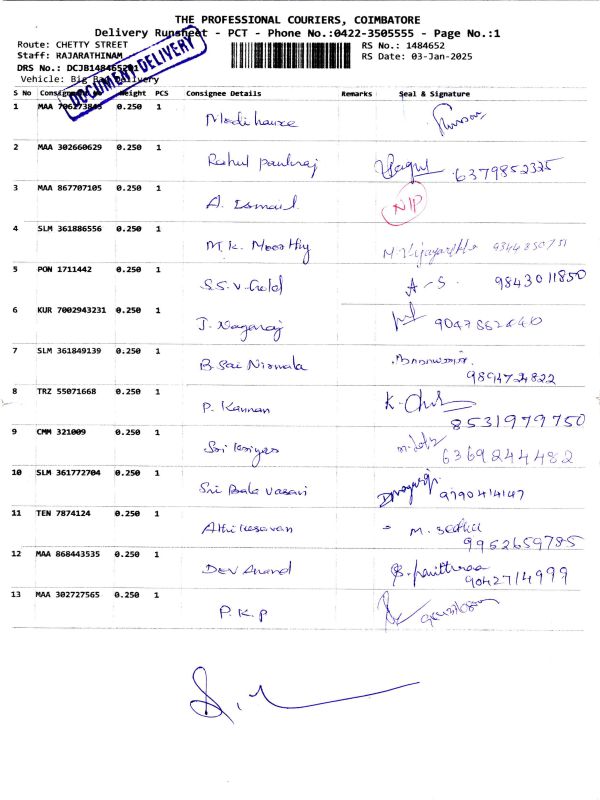 THE PROFESSIONAL COURIERS, COIMBATORE
Delivery Runsheet - PCT - Phone No.:0422-3505555 - Page No.:1
Route: CHETTY STREET RS No.: 1484652
Staff: RAJARATHINAM RS Date: 03-Jan-2025
DRS No.: 
Vehicle: Big Bag Delivery
DOCUMENT DELIVERY
S No Weight PCS Consignee Details Remarks Seal & Signature
1 MAA 0.250 1
2 MAA 302660629 0.250 1 Rahul 6379852325
3 MAA 867707105 0.250 1 A. Ismail N/P
4 SLM 361886556 0.250 1 M.K. Moorthy
5 PON 1711442 0.250 1 S.S.V. Gold A-S. 9843011850
6 KUR 7002943231 0.250 1 J. Nagaraj
7 SLM 361849139 0.250 1 B. Sai Nirmala
9894724822
8 TRZ 55071668 0.250 1 P. Kannan
8531979750
9 CMM 321009 0.250 1
6369244482
10 SLM 361772704 0.250 1 Sri Bala Vasavi
11 TEN 7874124 0.250 1 Athikesavan
9952659785
12 MAA 868443535 0.250 1 Dev Anand
9042714999
13 MAA 302727565 0.250 1 P.K.P